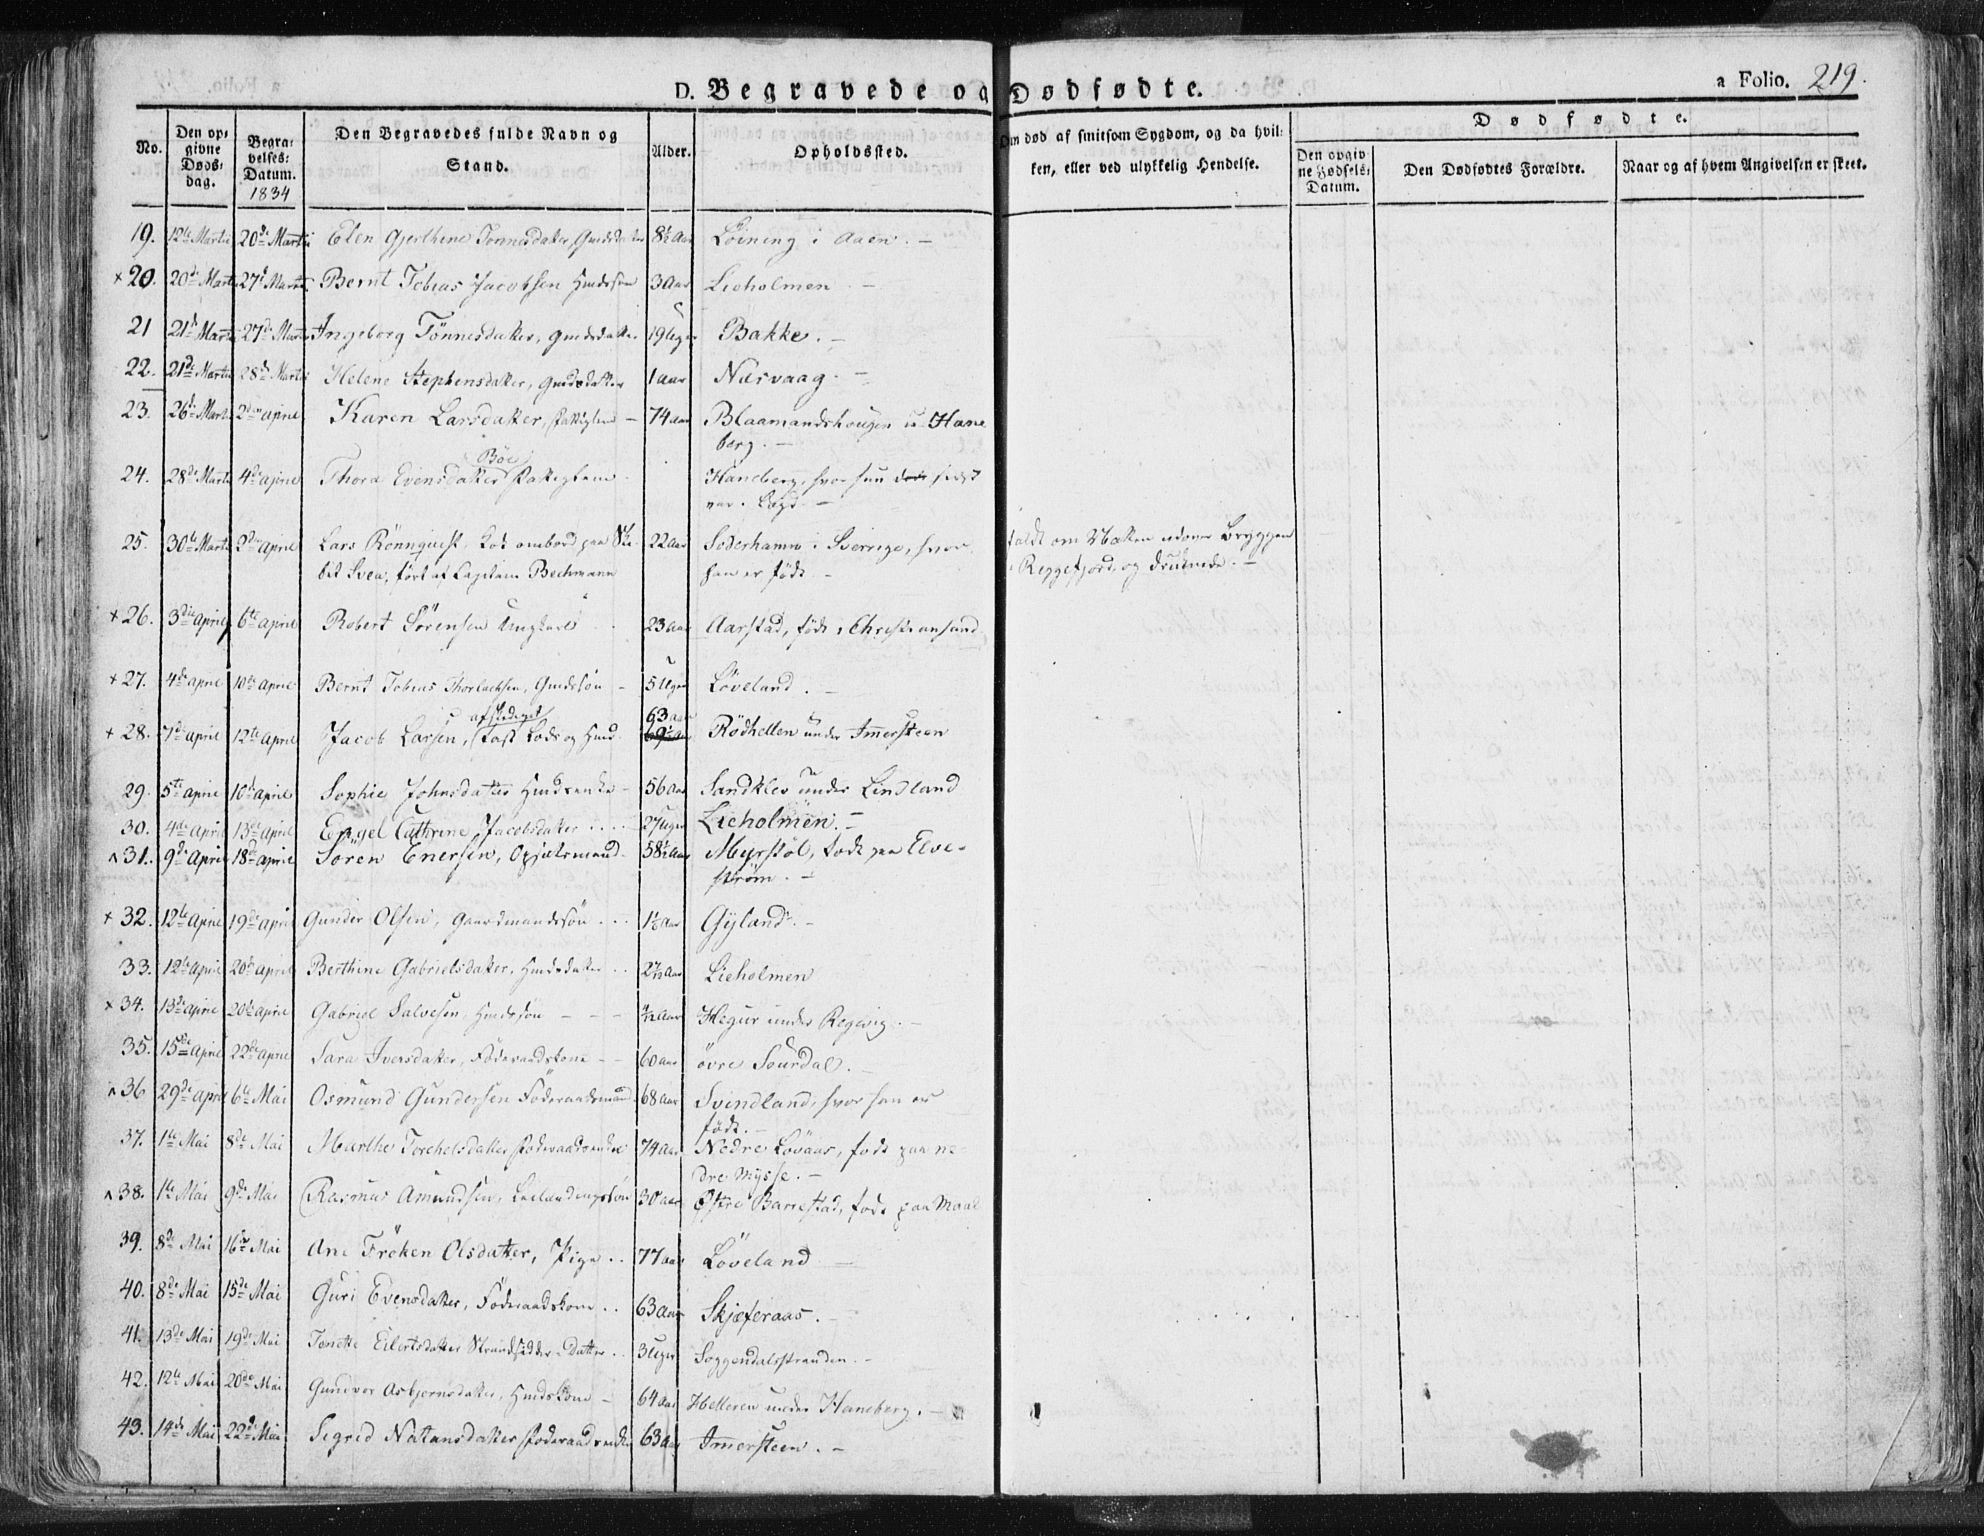 D. Begravede og Dødfødte. a Folio. 219.
No. Den opgivne Døds-dag. Begravelses-Datum. 1834 Den Begravedes fulde Navn og Stand. Alder. Opholdssted. Om død af smitsom Sygdom, og da hvilken, eller ved ulykkelig Hendelse. Dødfødte. Den opgivne Fødsels-Datum. Den Dødfødtes Forældre. Naar og af hvem Angivelsen er skeet.
19. 12te Martii 20de Martii Elen Gjerthine Tønnesdatter, 8½ Aar Løining i Aaen. –
+ 20. 20de Martii 27de Martii Bernt Tobias Jacobsen Huusmdssøn 3 Aar Lieholmen –
21 21de Martii 27de Martii Ingeborg Tønnesdatter, Gmdsdatter 19 Uger Bakke. –
22. 21de Martii 28de Martii Helene Stephensdatter, Gmdsdatter 1 aar Næsvaag. –
23. 26de Martii 2den April Karen Larsdatter, fattiglem – 74 aar Blaamandshougen u. Hane
berg. –
24. 28de Martii 4de April Thora Evensdatter Böe fattiglem Haneberg, hvor hun sidst
var i Lægd –
25. 30te Martii 3die April Lars Rönnquist, Kok ombord paa Ski- 22 aar Söderhamn i Sverrige, hvor faldt om Natten udover Bryggen
bet Svea, fört af Capitain Bechmann han er födt – i Reggefjord og druknede. –
+ 26. 3die April 6te April Robert Sörensen Ungkarl 23 aar Aarstad, födt i Christiansand
+ 27. 4de April 10de April Bernt Tobias Thorlachsen, Gmdssön – 5 Uger Löveland. –
+ 28. 7de April 12te April Jacob Larsen, afskediget fast Lods og Huusmd 63 aar Rödhellen under Immersteen
29. 5te April 16de April Sophie Johnsdatter Huusmdsenke – 56 aar Sandklev under Lindland
30. 4de April 13de April Engel Cathrine Jacobsdatter 27 Uger Lieholmen. –
31. 9de April 18de April Sören Enersen, Opsidsmand 58½ Aar Myrstöl, födt paa Elve-
ström. –
+ 32. 12te April 19de April Gunder Olsen, Gaardmandssön 1½ Aar Gyland. –
33. 12te April 20de April Berthine Gabrielsdatter, Huusmdsdatter Aar Lieholmen
+ 34. 13de April 20de April Gabriel Salvesen, Huusmdssön Aar Hegur under Regevig. –
35. 15de April 22de April Sara Iversdatter, Föderaadskone – 60 aar övre Sourdal. –
36 29de April 6te Mai Osmund Gundersen Föderaadsmand 68 aar Svindland, hvor han er
födt. –
37. 1te Mai 8de Mai Marthe Torchelsdatter föderaadsenke 74 aar Nedre Lövaas, födt paa ne-
dre Mysse. –
38. 1te Mai 9de Mai Rasmus Amundsen, Leilændingssön 30 aar Östre Barrestad, födt paa Moal
39. 8de Mai 16de Mai Ane Fröken Olsdatter, Pige 77 aar Löveland –
40. 8de Mai 15de Mai Guri Evensdatter, Föderaadskone 63 aar Skjæferaas. –
41. 13de Mai 19de Mai Tonette Eilertsdatter Strandsidder-Datter 3 Uger Soggendalsstranden. –
42. 12te Mai 20de Mai Gunvor Asbjernsdatter, Huusmdskone – 64 aar Helleren under Haneberg. –
43. 14de Mai 22de Mai Sigrid Natansdatter föderaadsenke 63 aar Immersteen. –